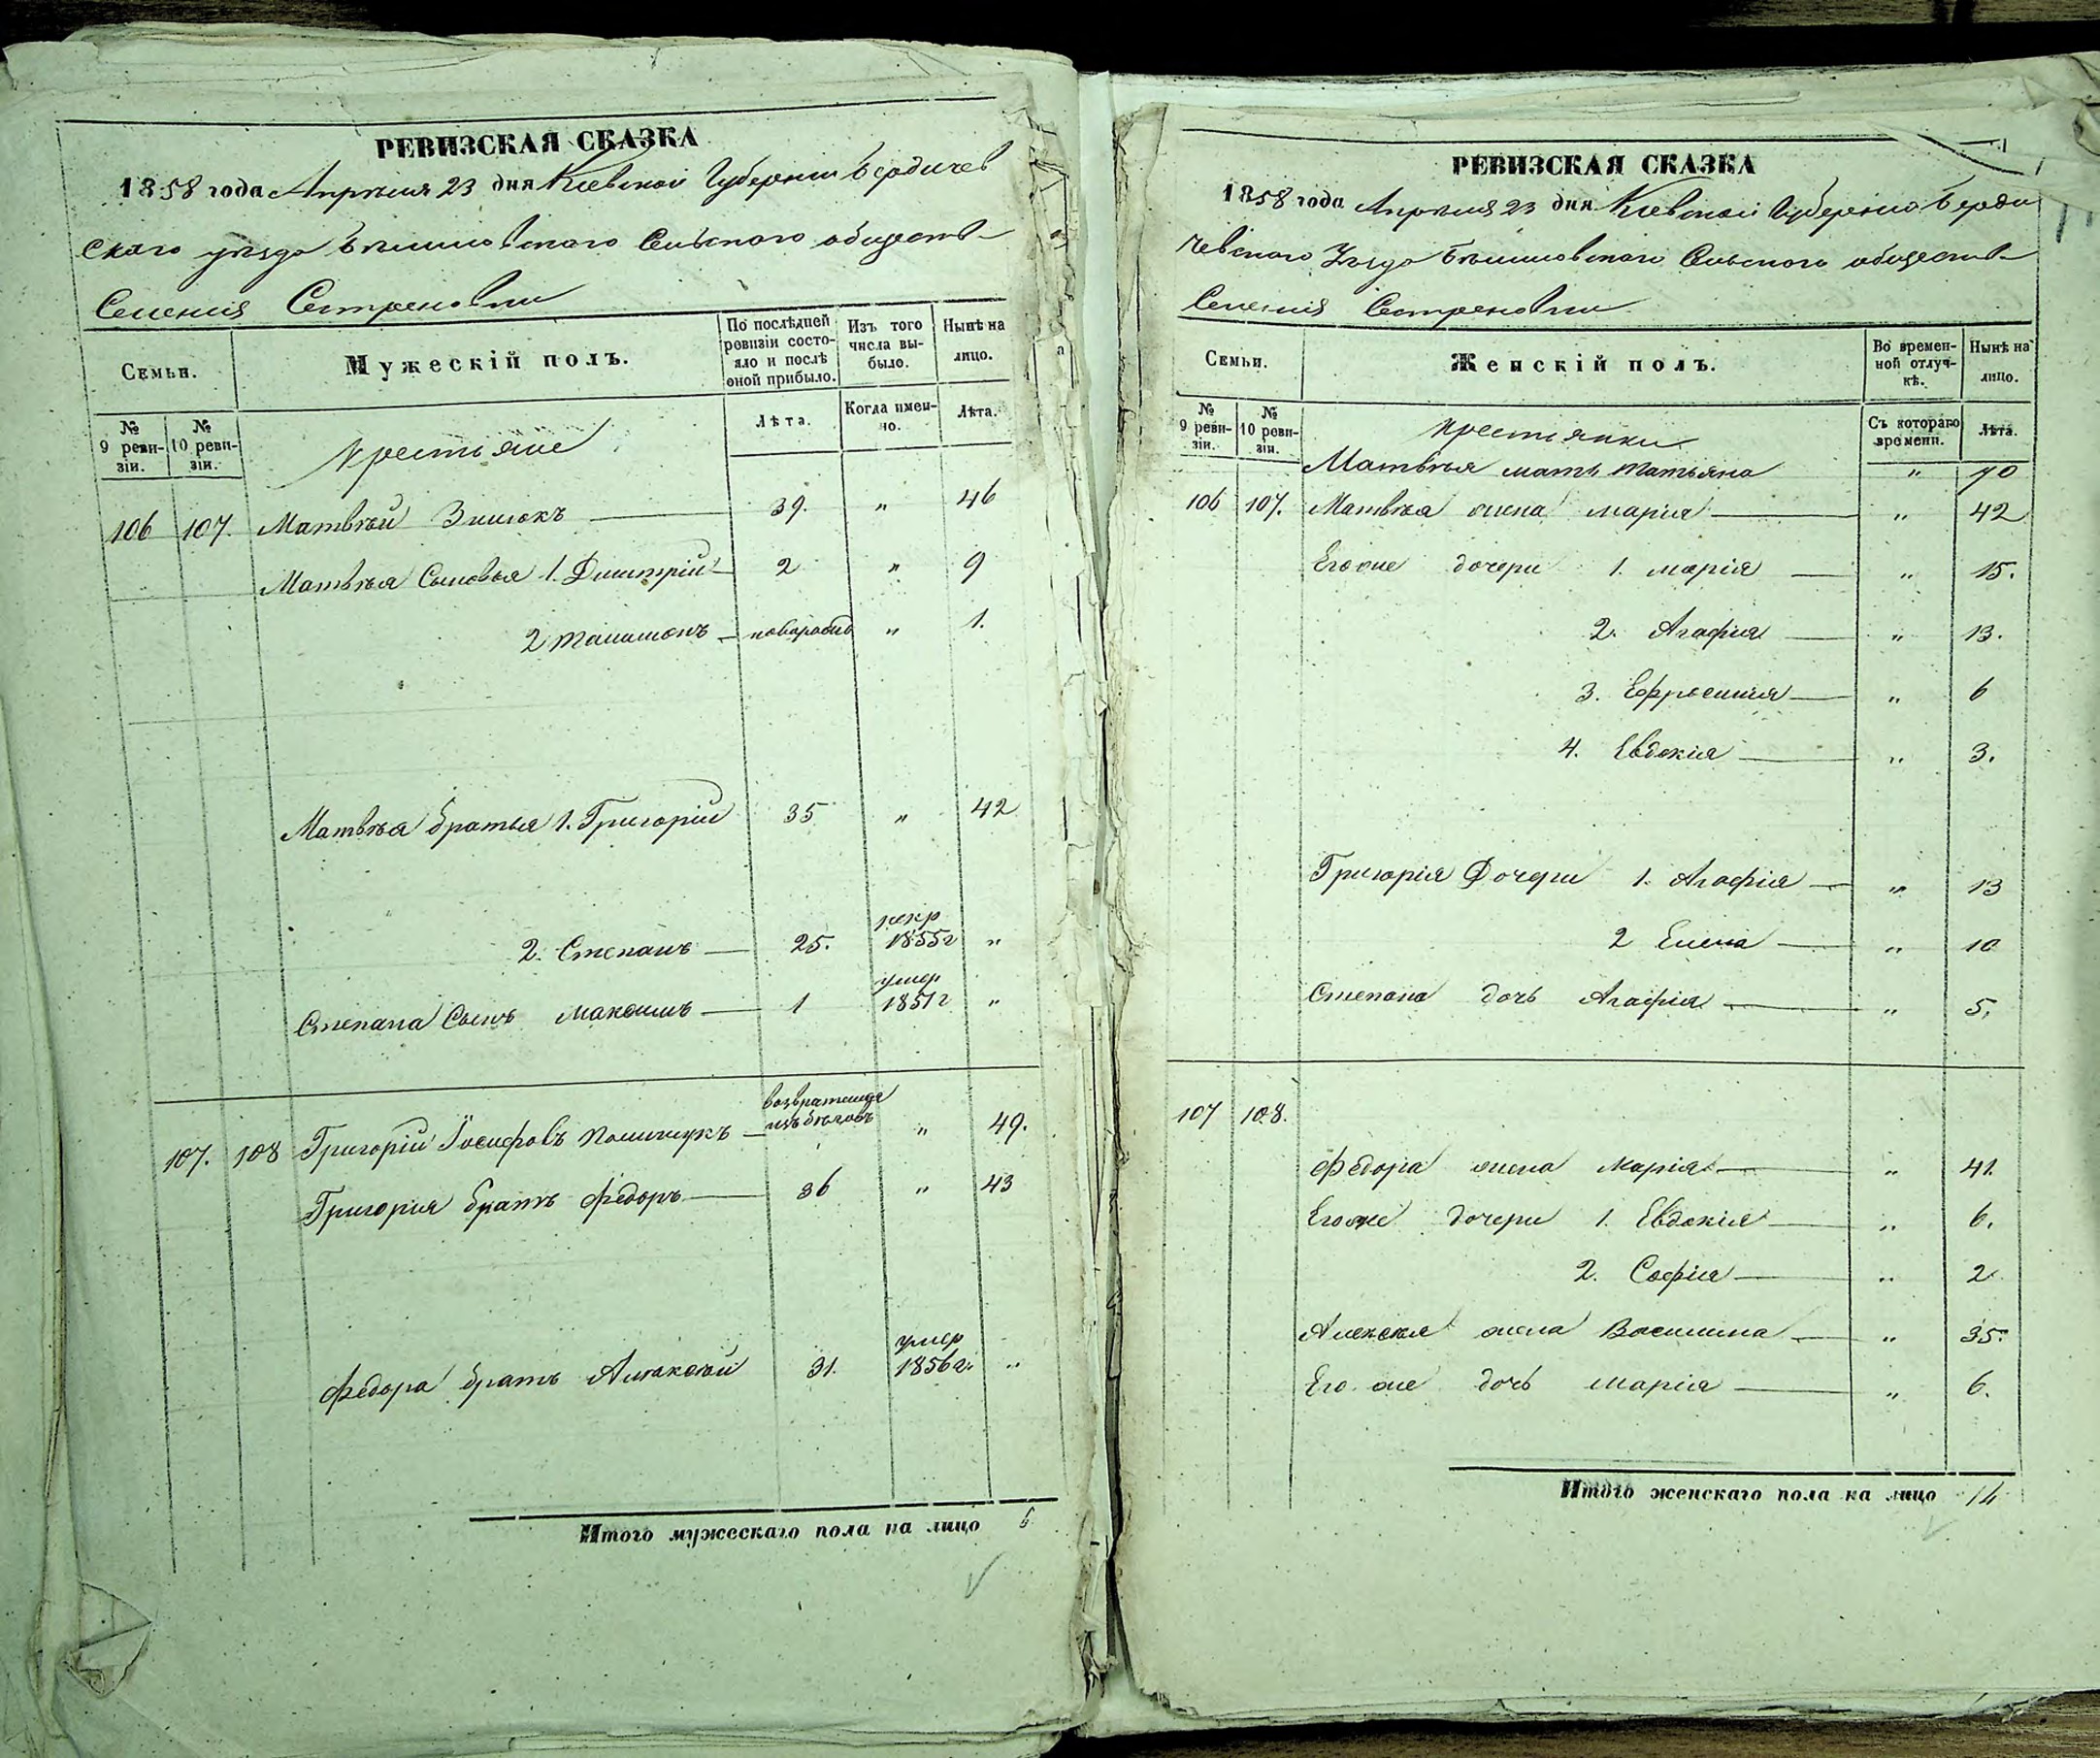 РЕВИЗСКАЯ СКАЗКА
1858 года Апрѣля 23 дня Кіевской Губерніи Бердичев
скаго уѣзда Бѣлиловскаго Сельскаго обществ
Селенія Сестреновки
Семьи.
Мужескій полъ.
По послѣдней ревизіи состояло и послѣ оной прибыло.
Изъ того числа выбыло.
Нынѣ на лицо.
№ 9 реви-зіи.
№ 10 реви-зіи.
Крестьяне
Лѣта.
Когда имен-но.
Лѣта.
106 107. Матвѣй 39. " 46
Матвѣя Сыновья 1. Дмитрій 2 " 9
2 новорожд " 1.
Матвѣя братья 1. Григорій 35 " 42
2. Степанъ 25. рекр 1855г "
Степана Сынъ Максимъ 1 умер 1851г "
107. 108 Григорій Іосифовъ Полищукъ возвратился изъ бѣговъ " 49.
Григорія братъ Федоръ 36 " 43
Федора братъ Алексѣй 31. умер 1856г. "
Итого мужескаго пола на лицо 6
РЕВИЗСКАЯ СКАЗКА
1858 года Апрѣля 23 дня Кіевской Губерніи Берди
чевскаго Уѣзда Бѣлиловскаго Сельскаго обществ
Селенія Сестреновки
Семьи.
Женскій полъ.
Во времен-ной отлуч-кѣ.
Нынѣ на лицо.
№ 9 реви-зіи.
№ 10 реви-зіи.
Крестьянки
Съ котораго времени.
Лѣта.
Матвѣя мать Татьяна " 70
106 107. Матвѣя жена Марія " 42
Егоже дочери 1. Марія " 15.
2. Агафія " 13.
3. Ефросинія " 6
4. Евдокія " 3.
Григорія Дочери 1. Агафія " 13
2 Елена " 10
Степана дочь Агафія " 5.
107 108.
Федора жена Марія " 41.
Егоже дочери 1. Евдокія " 6.
2. Софія " 2
Алексѣя жена Василина " 35.
Его же дочь Марія " 6.
Итого женскаго пола на лицо 14